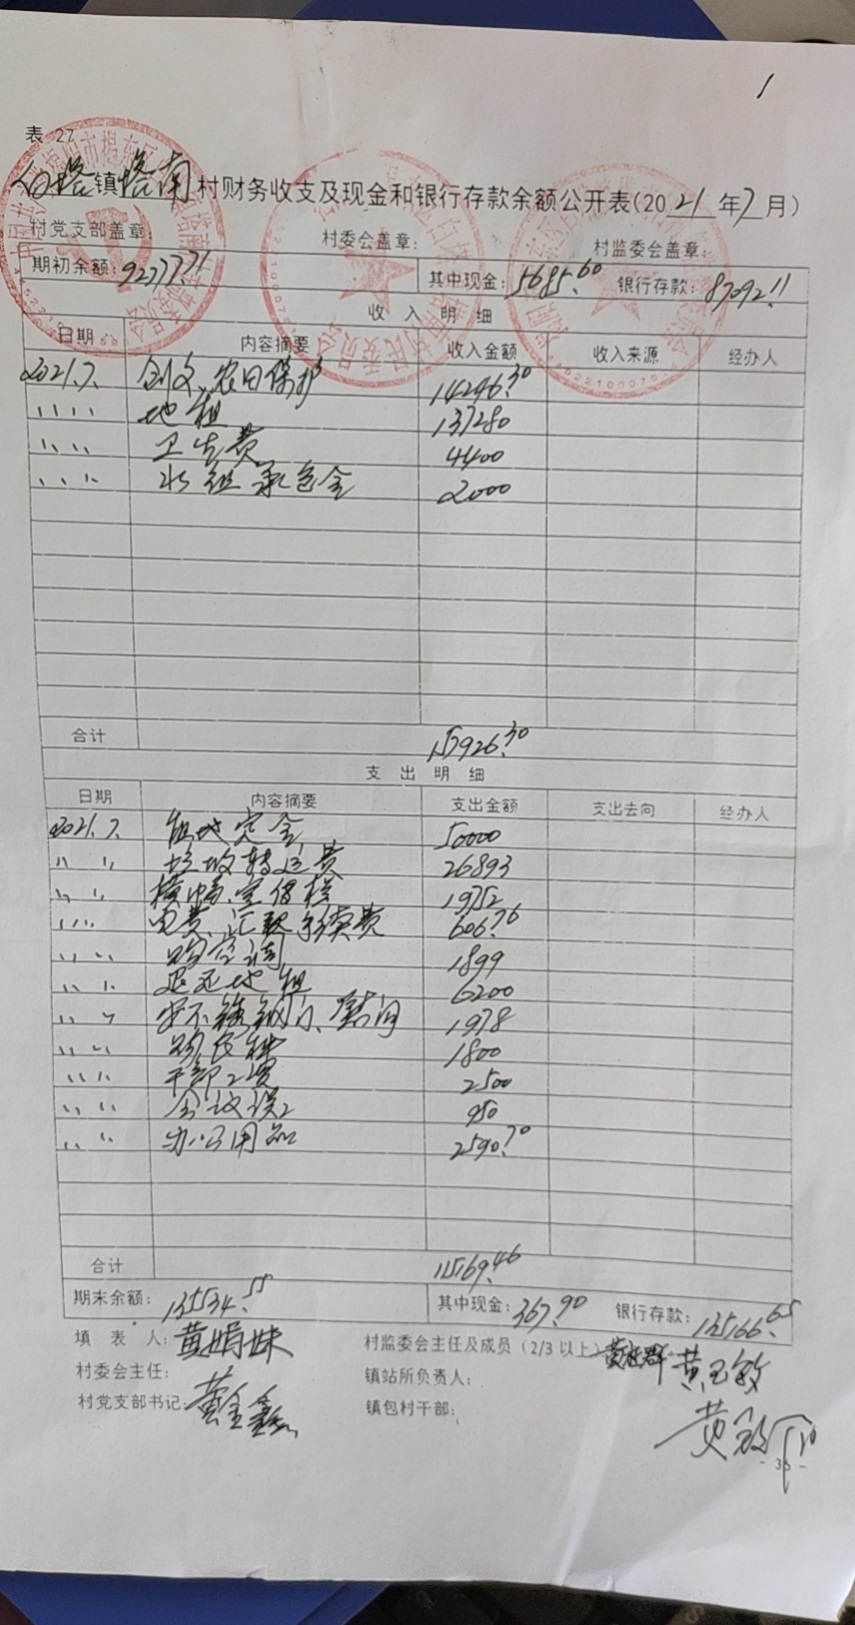 1
表 27
白塔镇塔南村财务收支及现金和银行存款余额公开表(2021年7月)
村党支部盖章: 村委会盖章: 村监委会盖章:
期初余额:92777.71 其中现金:5685.60 银行存款:87092.11
收 入 明 细
日期 内容摘要 收入金额 收入来源 经办人
2021.7. 创文、农田保护 14246.30
〃 〃 地租 137280
〃 〃 卫生费 4400
〃 〃 承包金 2000
合计 157926.30
支 出 明 细
日期 内容摘要 支出金额 支出去向 经办人
2021.7. 租地定金 50000
〃 〃 垃圾转运费 26893
〃 〃 横幅、宣传栏 19752
〃 〃 电费、汇款手续费 606.76
〃 〃 购空调 1899
〃 〃 退还地租 6200
〃 〃 安不锈钢门、慰问 1978
〃 〃 1800
〃 〃 干部工资 2500
〃 〃 会议误工 950
〃 〃 办公用品 2590.70
合计 115169.46
期末余额:135534.55 其中现金:367.90 银行存款:135166.65
填 表 人:黄娟妹 村监委会主任及成员(2/3以上) 黄玉敏
村委会主任: 镇站所负责人:
村党支部书记:黄金鑫 镇包村干部: